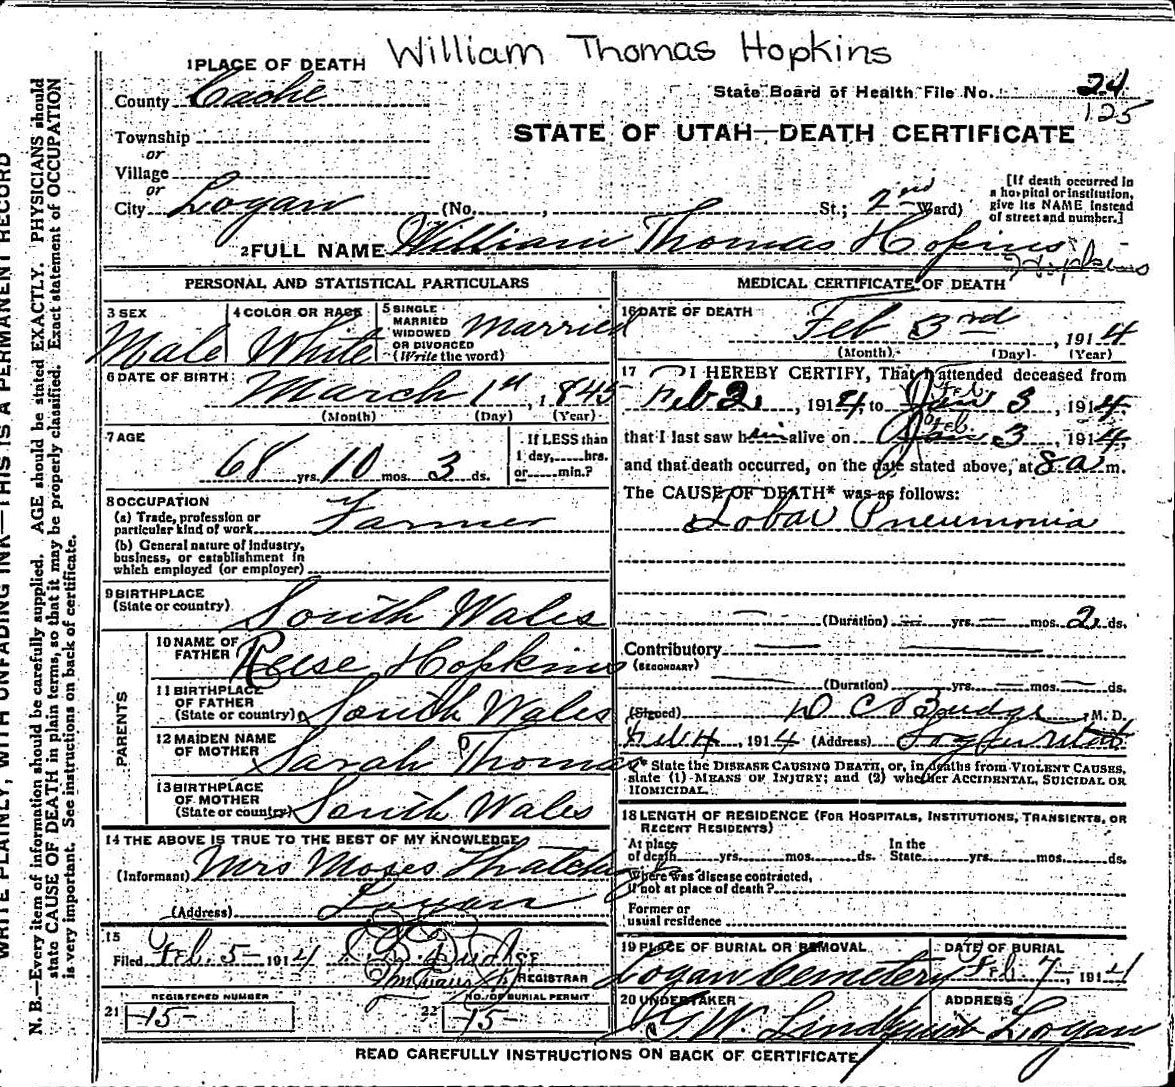 William Thomas Hopkins
1 PLACE OF DEATH
County Cache
State Board of Health File No. 24
125
Township
or
STATE OF UTAH—DEATH CERTIFICATE
Village
or
City Logan (No. , St.; 2nd Ward)
[If death occurred in
a hospital or institution,
give its NAME instead
of street and number.]
2 FULL NAME William Thomas Hopins
Hopkins
PERSONAL AND STATISTICAL PARTICULARS
3 SEX
Male
4 COLOR OR RACE
White
5 SINGLE
MARRIED
WIDOWED
OR DIVORCED
(Write the word)
Married
6 DATE OF BIRTH
March 1st, 1845
(Month) (Day) (Year)
7 AGE
68 yrs. 10 mos. 3 ds.
If LESS than
1 day, hrs.
or min.?
8 OCCUPATION
(a) Trade, profession or
particular kind of work Farmer
(b) General nature of industry,
business, or establishment in
which employed (or employer)
9 BIRTHPLACE
(State or country) South Wales
PARENTS
10 NAME OF
FATHER Reese Hopkins
11 BIRTHPLACE
OF FATHER
(State or country) South Wales
12 MAIDEN NAME
OF MOTHER Sarah Thomas
13 BIRTHPLACE
OF MOTHER
(State or country) South Wales
14 THE ABOVE IS TRUE TO THE BEST OF MY KNOWLEDGE
(Informant) Mrs Moses Thatcher
(Address) Logan
15
Filed Feb. 5- 1914
REGISTRAR
REGISTERED NUMBER
21 -15-
NO. OF BURIAL PERMIT
22 -15-
MEDICAL CERTIFICATE OF DEATH
16 DATE OF DEATH
Feb 3rd, 1914
(Month) (Day) (Year)
17 I HEREBY CERTIFY, That I attended deceased from
Feb 2, 1914, to Jan Feb 3, 1914.
that I last saw him alive on Jan Feb. 3, 1914,
and that death occurred, on the date stated above, at 8 a. m.
The CAUSE OF DEATH* was as follows:
Lobar Pneumonia
(Duration) yrs. mos. 2 ds.
Contributory
(SECONDARY)
(Duration) yrs. mos. ds.
(Signed) D C Budge, M. D.
Feb 4, 1914 (Address) Logan Utah
* State the DISEASE CAUSING DEATH, or, in deaths from VIOLENT CAUSES,
state (1) MEANS OF INJURY; and (2) whether ACCIDENTAL, SUICIDAL OR
HOMICIDAL.
18 LENGTH OF RESIDENCE (FOR HOSPITALS, INSTITUTIONS, TRANSIENTS, OR
RECENT RESIDENTS)
At place
of death yrs. mos. ds.
In the
State yrs. mos. ds.
Where was disease contracted,
if not at place of death?
Former or
usual residence
19 PLACE OF BURIAL OR REMOVAL
Logan Cemetery
DATE OF BURIAL
Feb. 7- 1914
20 UNDERTAKER
G.W. Lindquist
ADDRESS
Logan
READ CAREFULLY INSTRUCTIONS ON BACK OF CERTIFICATE
WRITE PLAINLY, WITH UNFADING INK—THIS IS A PERMANENT RECORD
N. B.—Every item of information should be carefully supplied. AGE should be stated EXACTLY. PHYSICIANS should
state CAUSE OF DEATH in plain terms, so that it may be properly classified. Exact statement of OCCUPATION
is very important. See instructions on back of certificate.